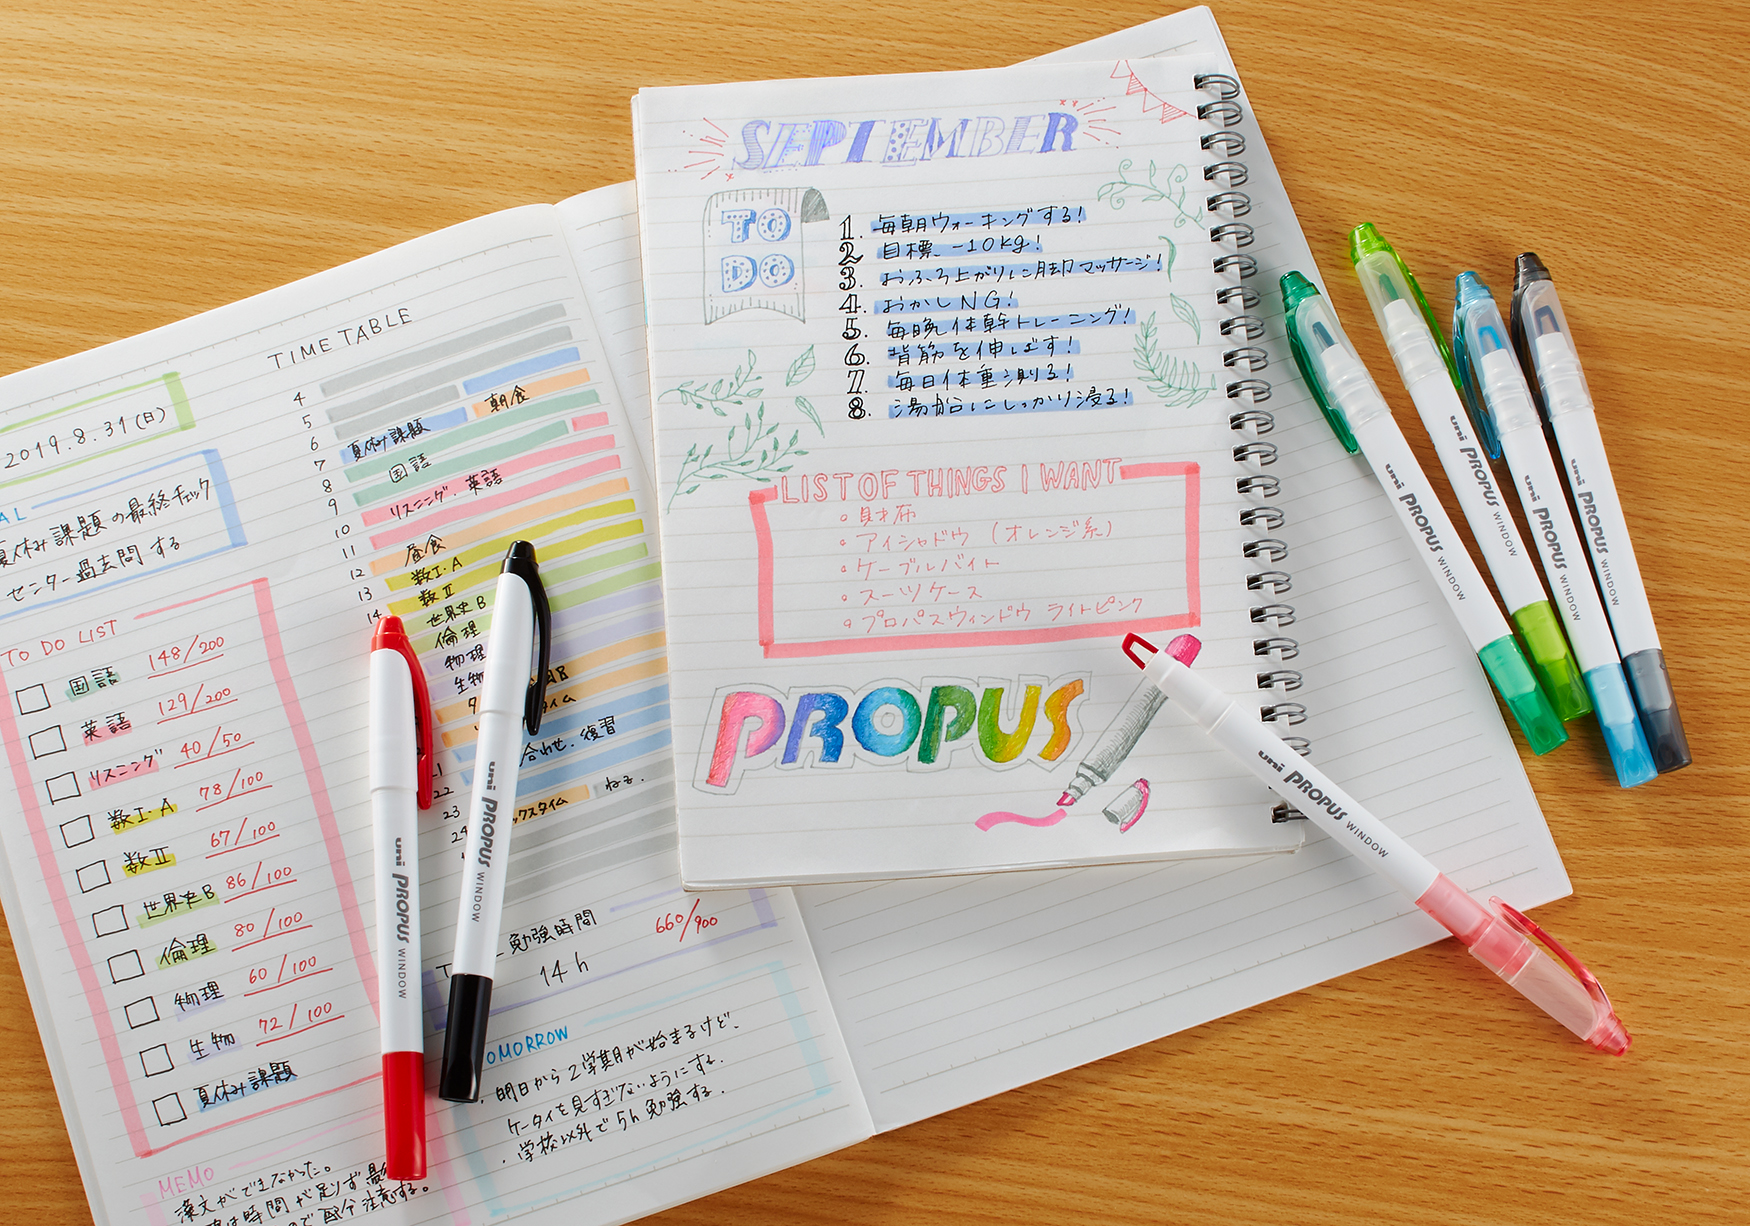 TIME TABLE
2019.8.31(日)
AL
夏休み課題の最終チェック
センター過去問する
4
5
6
7
8
9
10
11
12
13
14
朝食
夏休み課題
国語
リスニング・英語
昼食
数I・A
数II
世界史B
倫理
物理
生物
合わせ・復習
21
22
23
24
ックスタイム
ねる.
TO DO LIST
国語 148/200
英語 129/200
リスニング 40/50
数I・A 78/100
数II 67/100
世界史B 86/100
倫理 80/100
物理 60/100
生物 72/100
夏休み課題
勉強時間
14h
660/900
OMORROW
明日から2学期が始まるけど、
ケータイを見すぎないようにする.
学校以外で5h勉強する.
MEMO
漢文ができなかった。
は時間が足りず
で配分注意する。
SEPTEMBER
TO
DO
1. 毎朝ウォーキングする!
2. 目標 -10kg!
3. おふろ上がりに脚マッサージ!
4. おかしNG!
5. 毎晩体幹トレーニング!
6. 背筋を伸ばす!
7. 毎日体重測る!
8. 湯船にしっかり浸る!
LIST OF THINGS I WANT
財布
アイシャドウ (オレンジ系)
ケーブルバイト
スーツケース
プロパスウィンドウ ライトピンク
PROPUS
uni PROPUS WINDOW
uni PROPUS WINDOW
uni PROPUS WINDOW
uni PROPUS WINDOW
uni PROPUS WINDOW
uni PROPUS WINDOW
uni PROPUS WINDOW